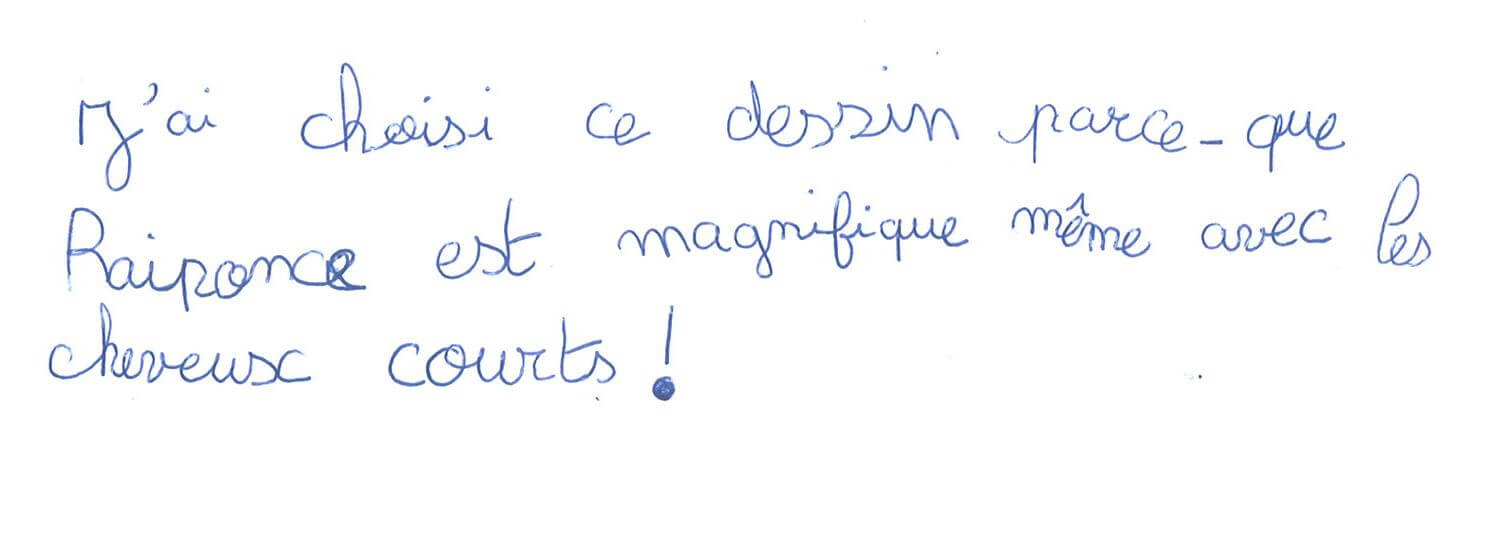 J'ai choisi ce dessin parce-que
Raiponce est magnifique même avec les
cheveux courts !